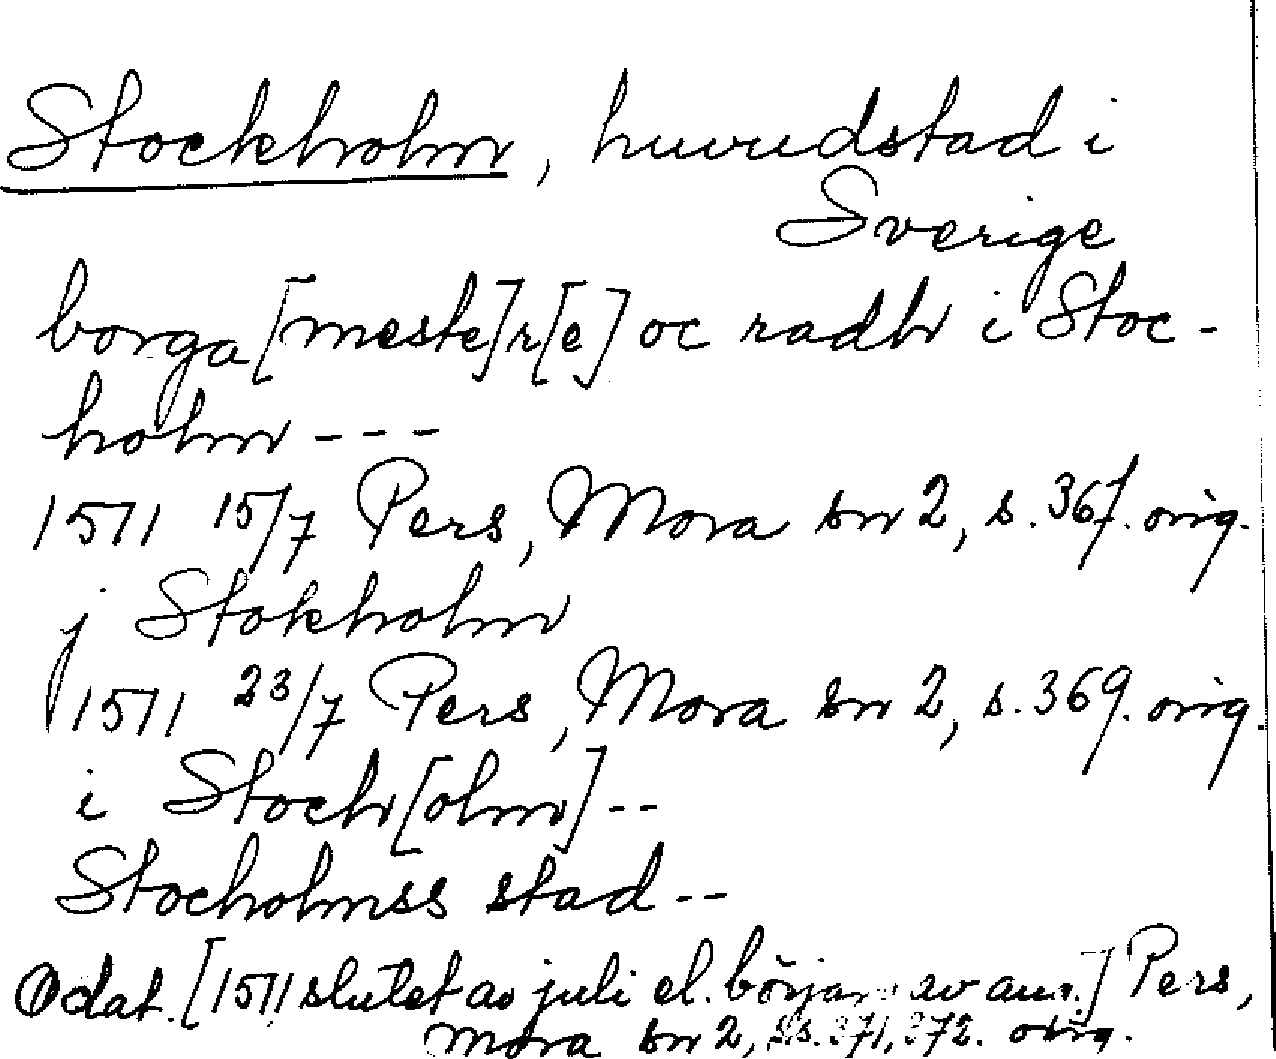 Stockholm, huvudstad i
Sverige
borga[meste]r[e] oc radh i Stoc-
holm ---
1571 15/7 Pers, Mora sn 2, s. 367. orig.
j Stokholm
1571 23/7 Pers, Mora sn 2, s. 369. orig.
i Stoch[olm] --
Stocholmss stad --
Odat. [1571 slutet av juli el. början av aug.] Pers,
Mora sn 2, ss. 371, 372. orig.